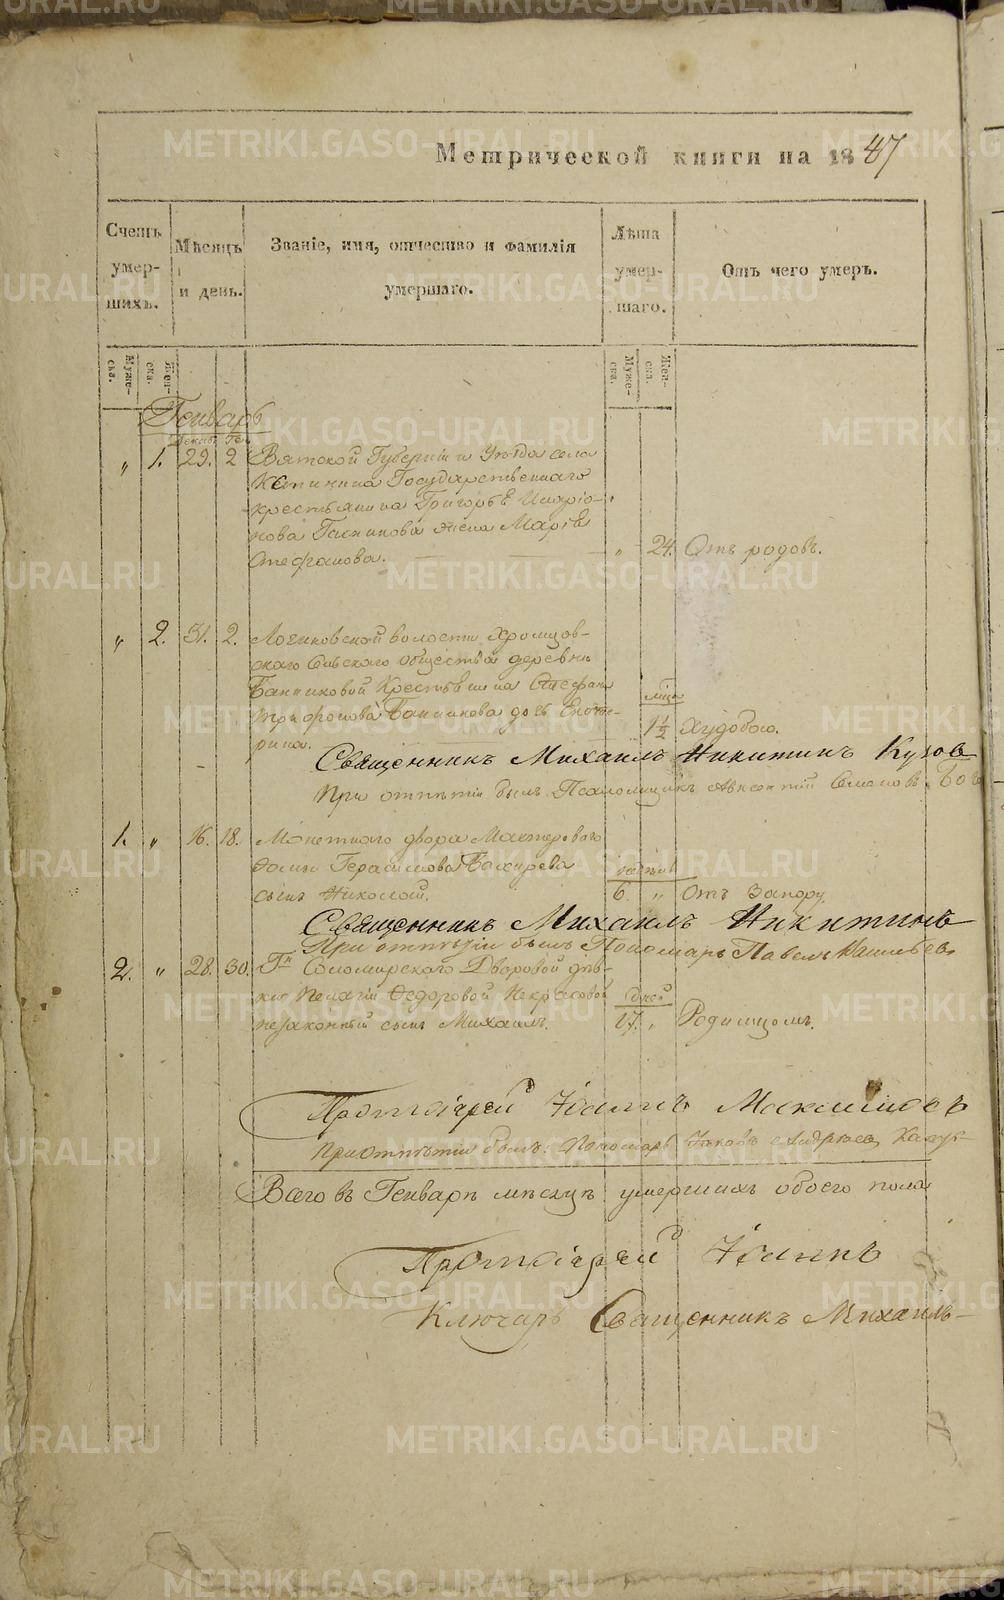 Метрической книги на 1847
Счетъ умер-шихъ.
Мѣсяцъ и день.
Званіе, имя, отчество и фамилія умершаго.
Лѣта умер-шаго.
Отъ чего умеръ.
Муже-ска.
Жен-ска.
Муже-ска.
Жен-ска.
Генварь
Декаб. Ген.
„ 1. 29. 2 Вятской Губерніи и Уѣзда села
Государственнаго
крестьянина Григорья Иларіо-
нова жена Марья
Стефанова. „ 24. Отъ родовъ.
„ 2. 31. 2. волости Хромцов-
скаго Сельскаго общества деревни
Банниковой Крестьянина Стефана
Трифонова Банникова дочь Екате-
рина. мѣся 1½ Худобою.
Священникъ Михаилъ Никитинъ
При отпѣтіи былъ Псаломщикъ Авксентій Семеновъ
1. „ 16. 18. Монетнаго двора Мастероваго
Герасимова сынъ Николай. 6. „ Отъ запору.
Священникъ Михаилъ Никитинъ
При отпѣтіи былъ Пономарь Павелъ
2. „ 28. 30. Гна Соломирскаго Дворовой дѣв-
ки Пелагіи Ѳедоровой Некрасовой
незаконный сынъ Михаилъ. дней 17. „ Родимцомъ.
Протоіерей Іоаннъ
При отпѣтіи былъ: Пономарь Іаковъ Андреевъ
Всего въ Генварѣ мѣсяцѣ умершихъ обоего пола
Протоіерей Іоаннъ
Ключарь Священникъ Михаилъ
METRIKI.GASO-URAL.RU